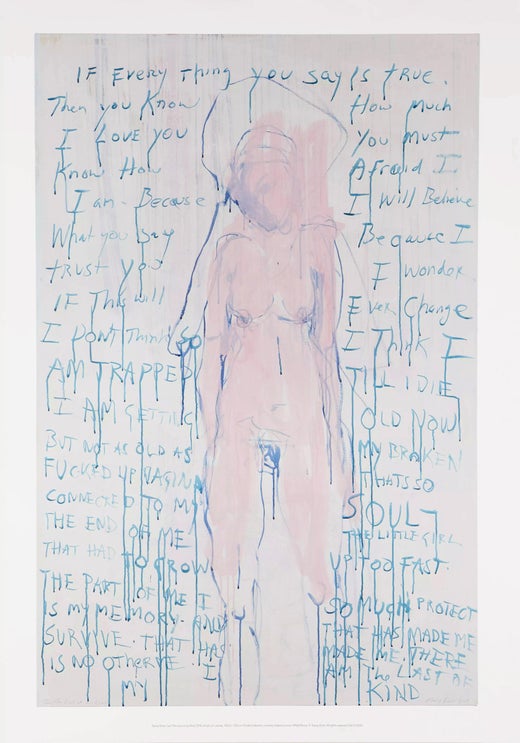 IF Every Thing you say Is true.
Then you Know How much
I Love you You must
Know How Afraid I
I am - Because I Will Believe
What you Say Because I
trust you I Wonder
IF This will Ever Change
I Dont Think So I Think I
AM TRAPPED TILL I DIE
I AM GETTING OLD NOW
BUT NOT AS OLD AS MY BROKEN
FUCKED UP VAGINA THATS SO
CONNECTED TO MY SOUL-
THE END OF ME THE LITTLE GIRL
THAT HAD TO GROW UP TOO FAST.
THE PART OF ME I SO MUCH PROTECT
IS MY MEMORY - AND THAT HAS MADE ME
SURVIVE. THAT HAS MADE ME. THERE
IS NO I AM The LAST OF
MY KIND